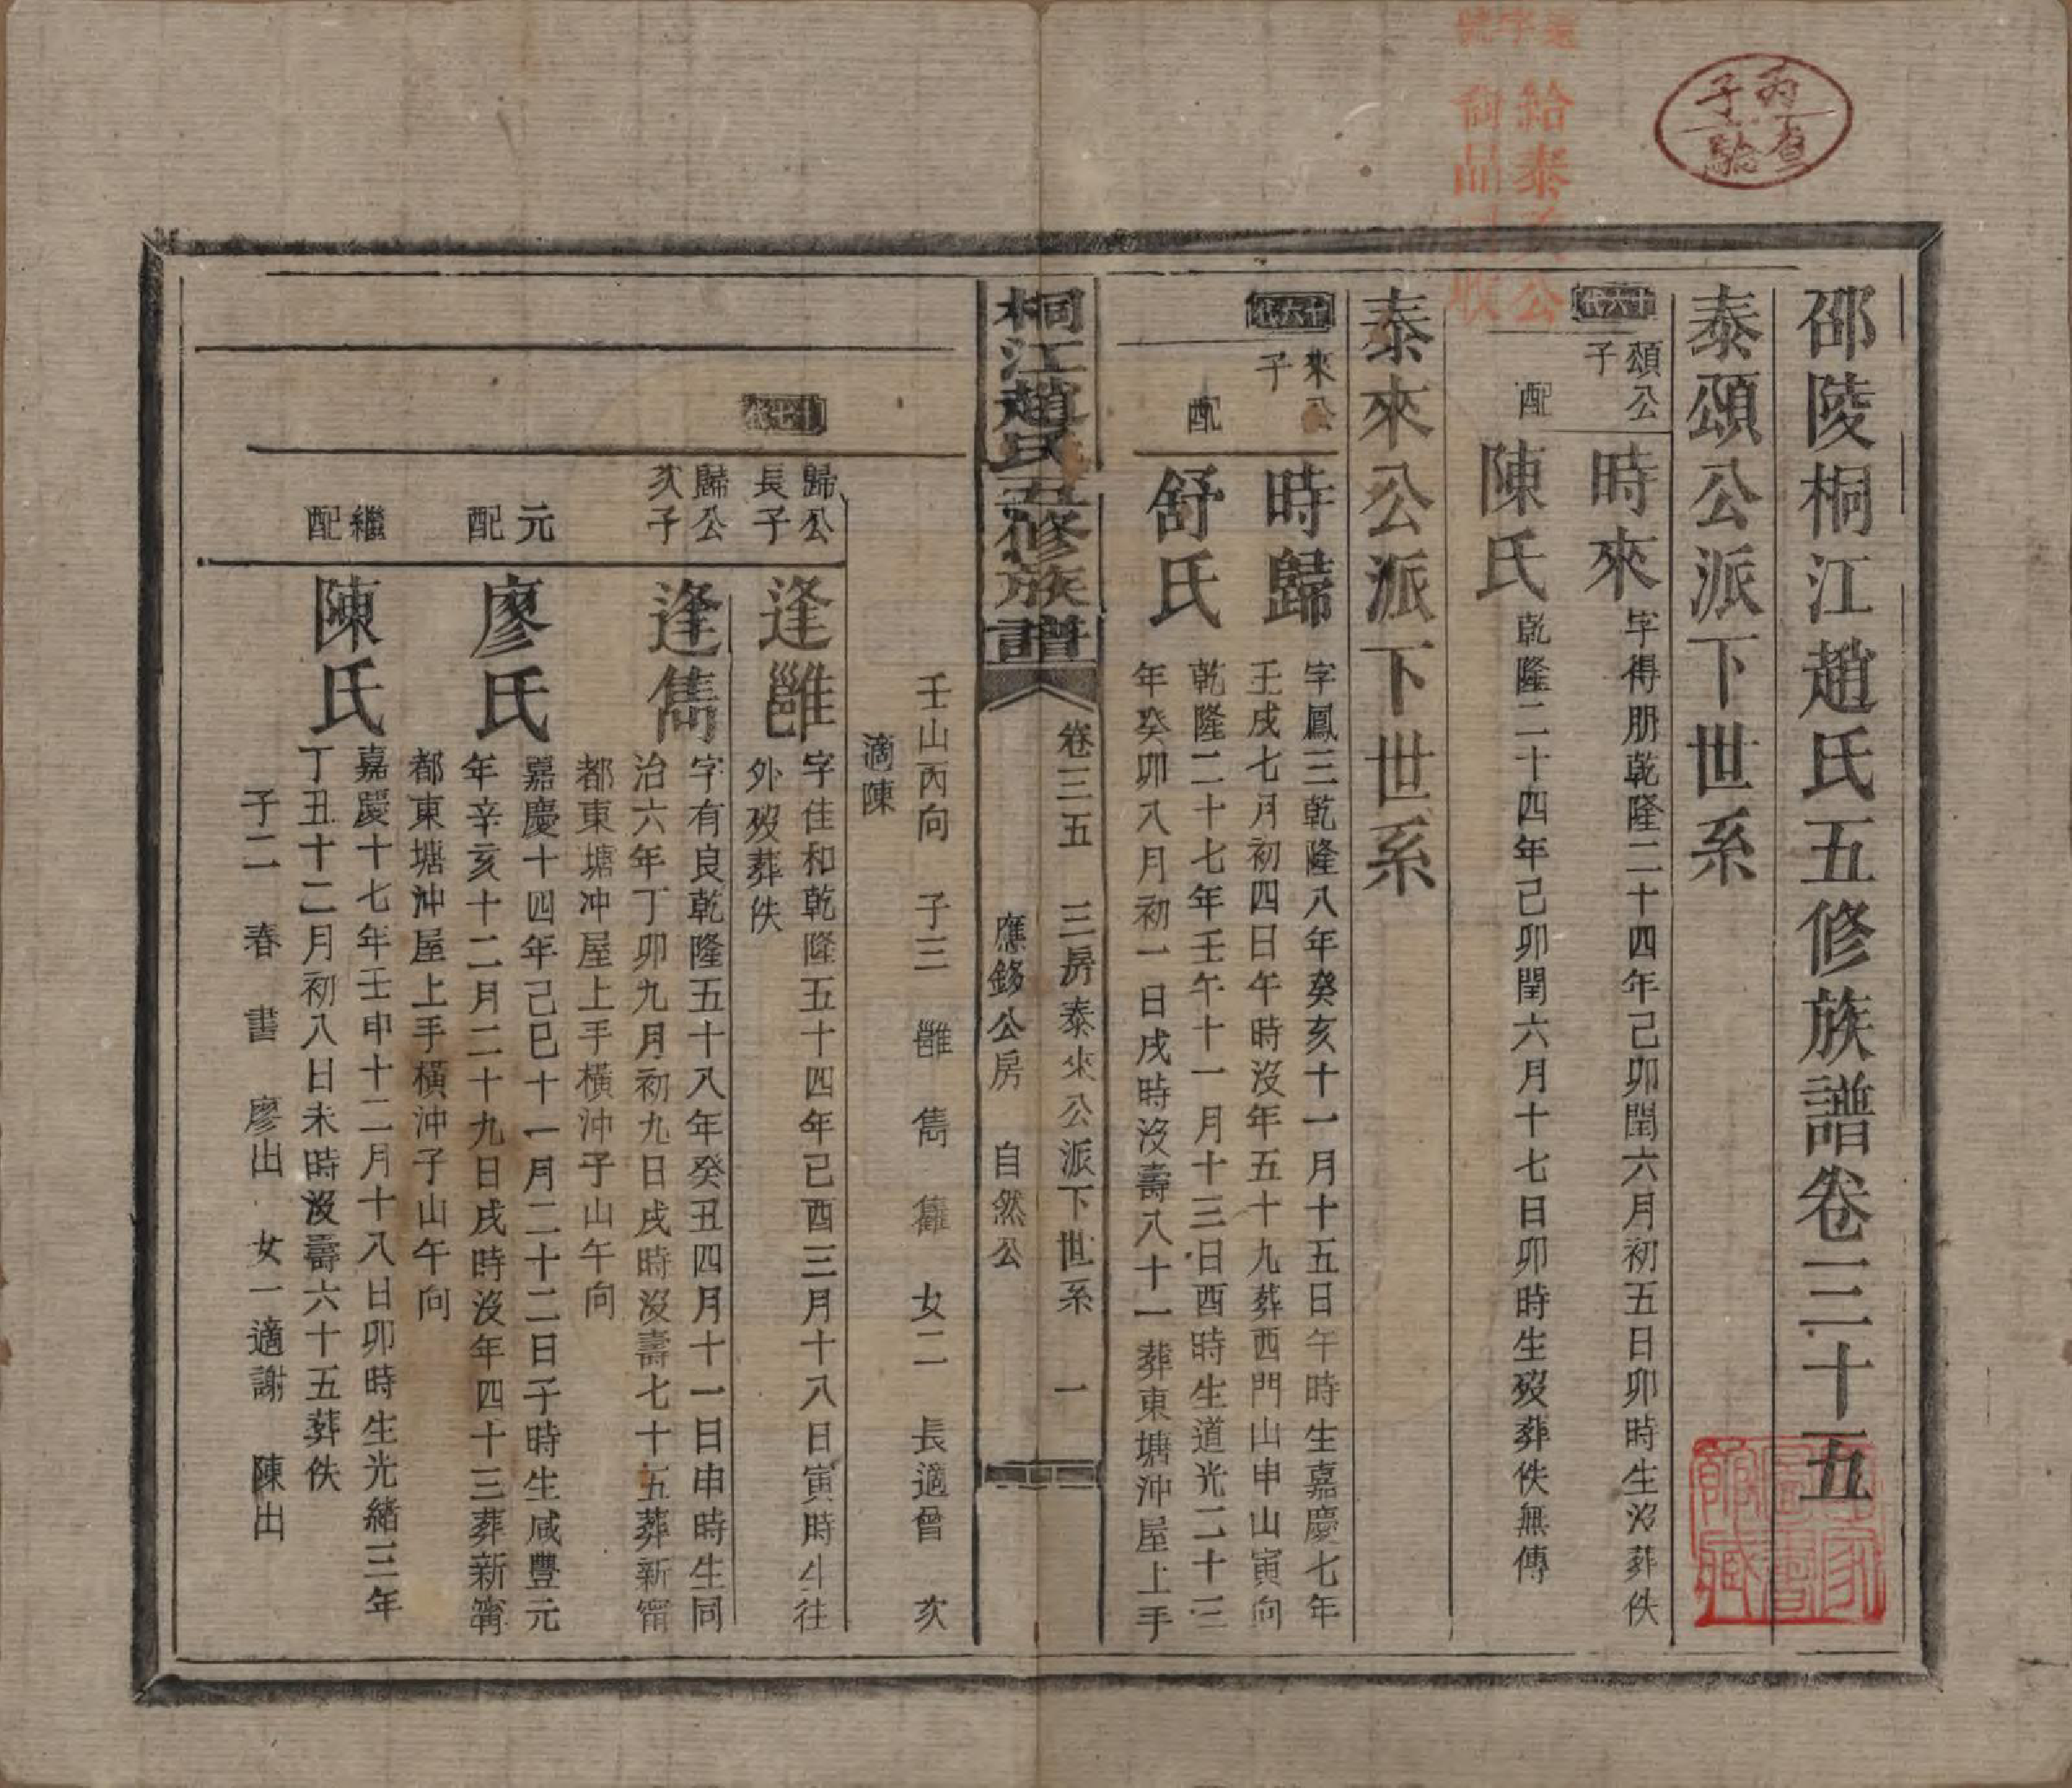 邵陵桐江趙氏五修族譜卷三十五
泰頌公派下世系
十六代
頌公子
時來
字得朋乾隆二十四年己卯閏六月初五日卯時生沒葬佚
配
陳氏
乾隆二十四年己卯閏六月十七日卯時生歿葬佚無傳
泰來公派下世系
十六代
來公子
時歸
字鳳三乾隆八年癸亥十一月十五日午時生嘉慶七年
壬戌七月初四日午時沒年五十九葬西門山申山寅向
配
舒氏
乾隆二十七年壬午十一月十三日酉時生道光二十三
年癸卯八月初一日戌時沒壽八十一葬東塘沖屋上手
桐江趙氏五修族譜
卷三五 三房泰來公派下世系 一
應鉹公房 自然公
壬山丙向 子三 雝 雋 雟 女二 長適曾 次
適陳
十七代
歸公長子
逢雝
字佳和乾隆五十四年己酉三月十八日寅時生往
外歿葬佚
歸公次子
逢雋
字有良乾隆五十八年癸丑四月十一日申時生同
治六年丁卯九月初九日戌時沒壽七十五葬新甯
都東塘冲屋上手橫沖子山午向
元配
廖氏
嘉慶十四年己巳十一月二十二日子時生咸豐元
年辛亥十二月二十九日戌時沒年四十三葬新甯
都東塘沖屋上手橫沖子山午向
繼配
陳氏
嘉慶十七年壬申十二月十八日卯時生光緒三年
丁丑十二月初八日未時沒壽六十五葬佚
子二 春 書 廖出 女一適謝 陳出
給泰
公
品
收
字號
丙子查驗